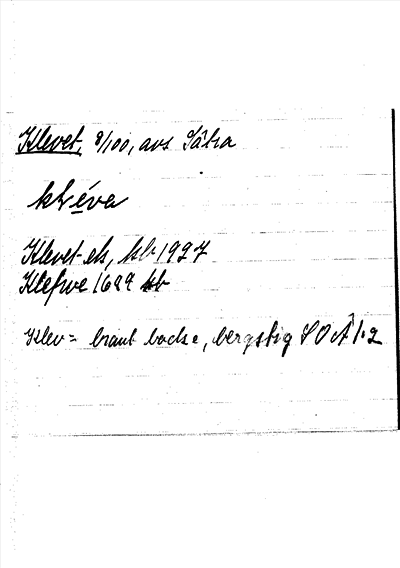 Klevet, 8/100, avs Sätra
kléva
Klevet ek, kb 1927
Klefwe 1699 kb
Klev = brant backe, bergstig SOÄ 1:2